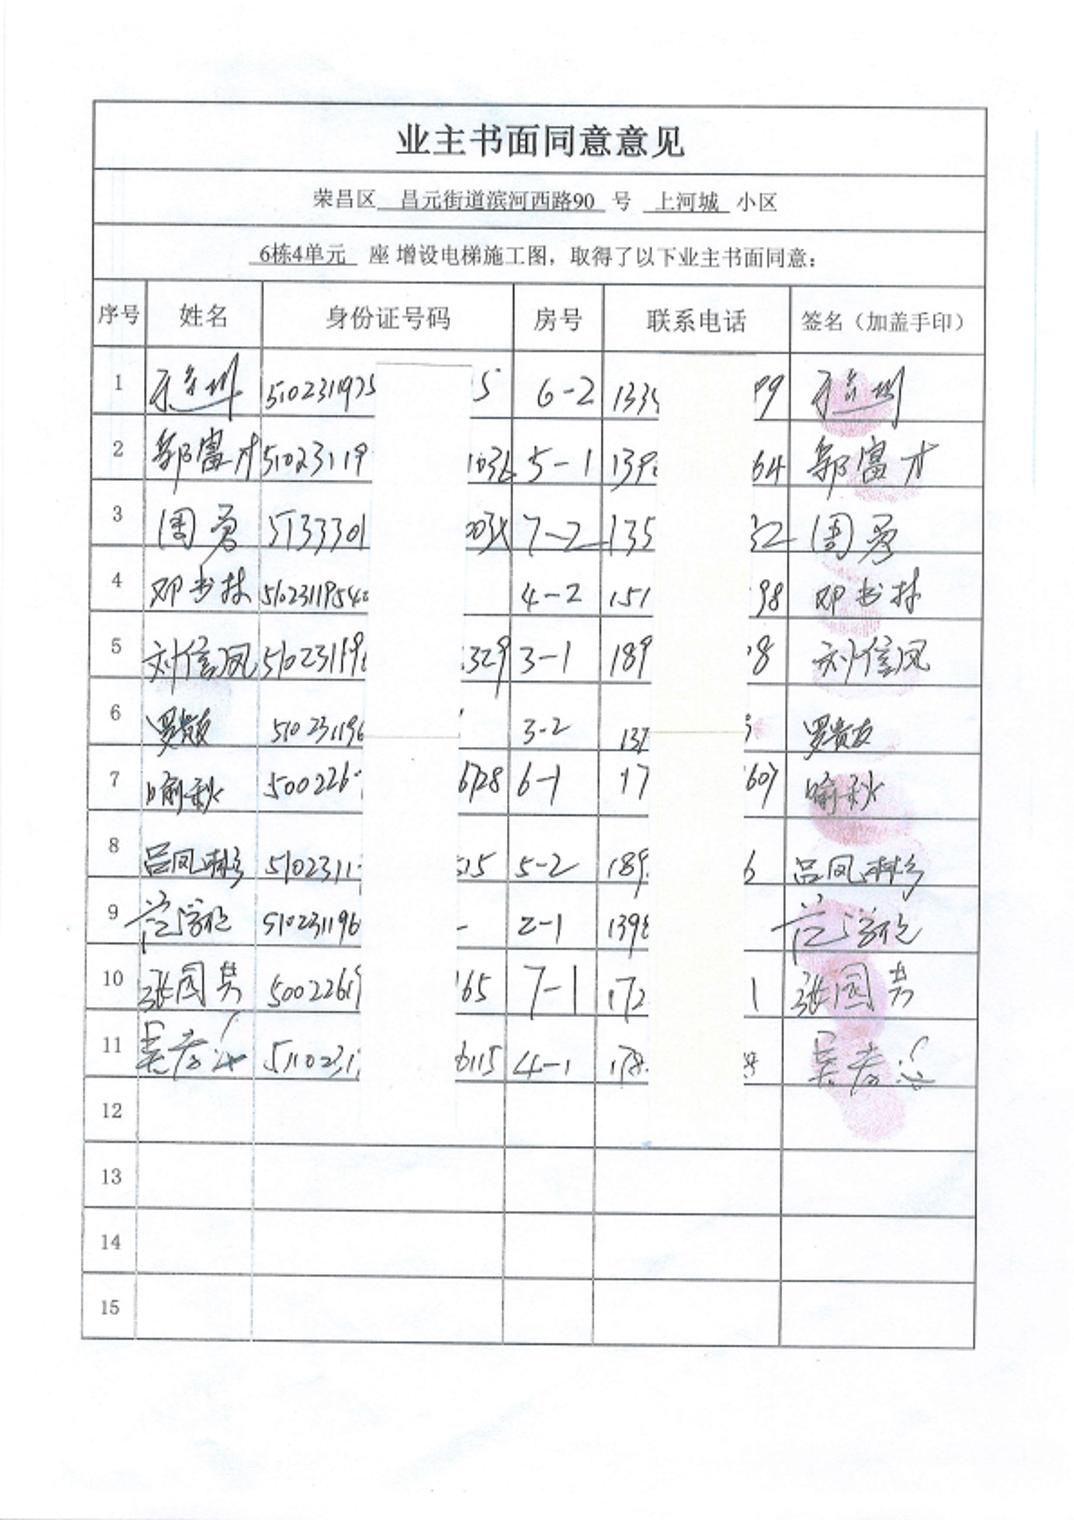 业主书面同意意见
荣昌区 昌元街道滨河西路90 号 上河城 小区
6栋4单元 座 增设电梯施工图，取得了以下业主书面同意：
序号 姓名 身份证号码 房号 联系电话 签名（加盖手印）
1 5102311975 5 6-2 133 99
2 郭富才 51023119 1036 5-1 139 64 郭富才
3 周勇 5133301 003X 7-2 135 32 周勇
4 邓书林 5102311954 4-2 151 98 邓书林
5 刘信凤 510231196 329 3-1 189 8 刘信凤
6 罗贵友 510231196 3-2 137 罗贵友
7 喻秋 500226 6728 6-1 17 607 喻秋
8 吕凤彬 5102311 515 5-2 189 6 吕凤彬
9 510231196 2-1 1398
10 张国其 5002261 165 7-1 172 1 张国其
11 51023 6115 4-1 178
12
13
14
15